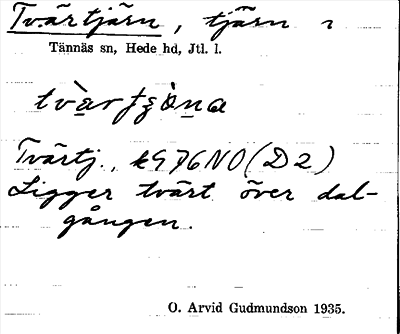 Tvärtjärn, tjärn
Tännäs sn, Hede hd, Jtl. l.
Tvärtj., k976NO (D2)
Ligger tvärt över dal-
gången.
O. Arvid Gudmundson 1935.